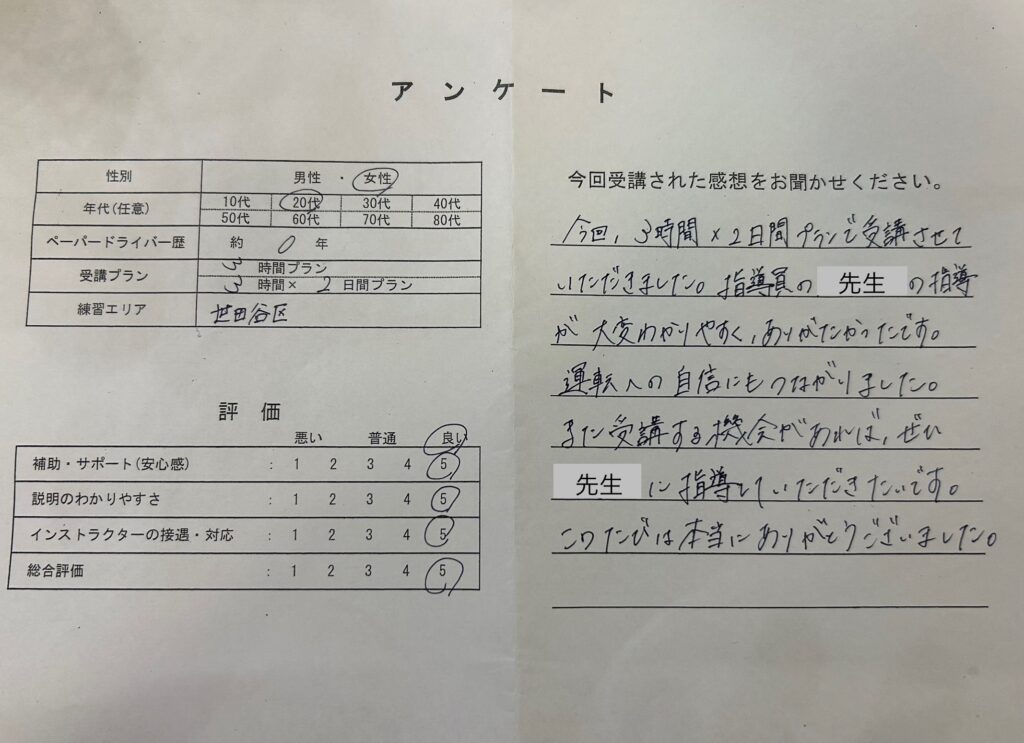 アンケート
性別 男性 ・ 女性
年代(任意) 10代 20代 30代 40代
50代 60代 70代 80代
ペーパードライバー歴 約 0 年
受講プラン 3 時間プラン
3 時間× 2 日間プラン
練習エリア 世田谷区
評価
悪い 普通 良い
補助・サポート(安心感) : 1 2 3 4 5
説明のわかりやすさ : 1 2 3 4 5
インストラクターの接遇・対応 : 1 2 3 4 5
総合評価 : 1 2 3 4 5
今回受講された感想をお聞かせください。
今回、3時間×2日間プランで受講させて
いただきました。指導員の 先生 の指導
が大変わかりやすく、ありがたかったです。
運転への自信にもつながりました。
また受講する機会があれば、ぜひ
先生 に指導していただきたいです。
このたびは本当にありがとうございました。